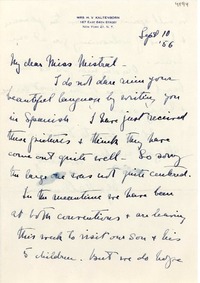 MRS. H. V. KALTENBORN
167 EAST 64TH STREET
NEW YORK 21, N. Y.
Sept 10
'56
My dear Miss Mistral -
I do not dare ruin your
beautiful language by writing you
in Spanish. I have just received
these pictures & think they have
come out quite well - So sorry
the large one was not quite centered.
In the meantime we have been
at both conventions & are leaving
this week to visit our son & his
5 children. But we do hope